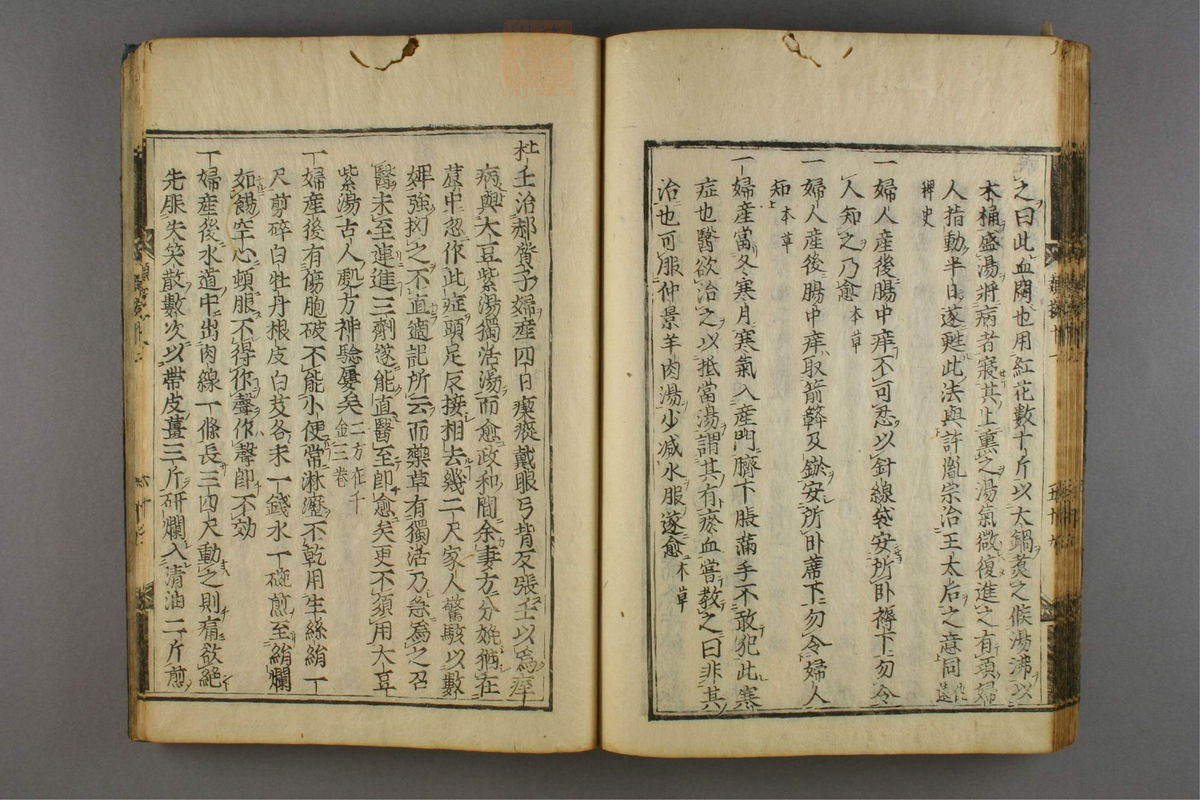 之曰此血悶也用紅花數十斤以大鍋煮之候湯沸以
木桶盛湯將病者寢其上熏之湯氣微復進之有頃婦
人指動半日遂甦此法與許胤宗治王太后之意同
稗史
一婦人産後腸中痒不可忍以針線袋安所卧褥下勿令
人知之乃愈 本草
一婦人産後腸中痒取箭簳及鏃安所卧蓆下勿令婦人
知 本草
一婦産當冬寒月寒氣入産門臍下脹滿手不敢犯此寒
症也醫欲治之以抵當湯謂其有瘀血嘗教之曰非其
治也可服仲景羊肉湯少减水服遂愈 本草
杜壬治郝質子婦産四日瘈瘲戴眼弓背反張壬以爲痙
病與大豆紫湯獨活湯而愈政和間余妻方分娩猶在
蓐中忽作此症頭足反接相去幾二尺家人驚駭以數
婢強拗之不直適記所云而藥草有獨活乃急爲之召
醫未至連進三劑遂能直醫至卽愈矣更不須用大豆
紫湯古人處方神驗屢矣 二方在千金三卷
一婦産後有傷胞破不能小便常淋瀝不乾用生絲絹一
尺剪碎白牡丹根皮白芨各末一錢水一碗煎至絹爛
如餳空心頓服不得作聲作聲卽不効
一婦産後水道中出肉線一條長三四尺動之則痛欲絶
先服失笑散數次以帶皮薑三斤研爛入清油二斤煎